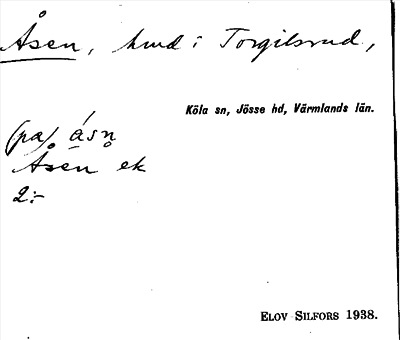 Åsen, hmd i Torgilsrud,
Köla sn, Jösse hd, Värmlands län.
(pa) ásn̥
Åsen ek
2:-
ELOV SILFORS 1938.